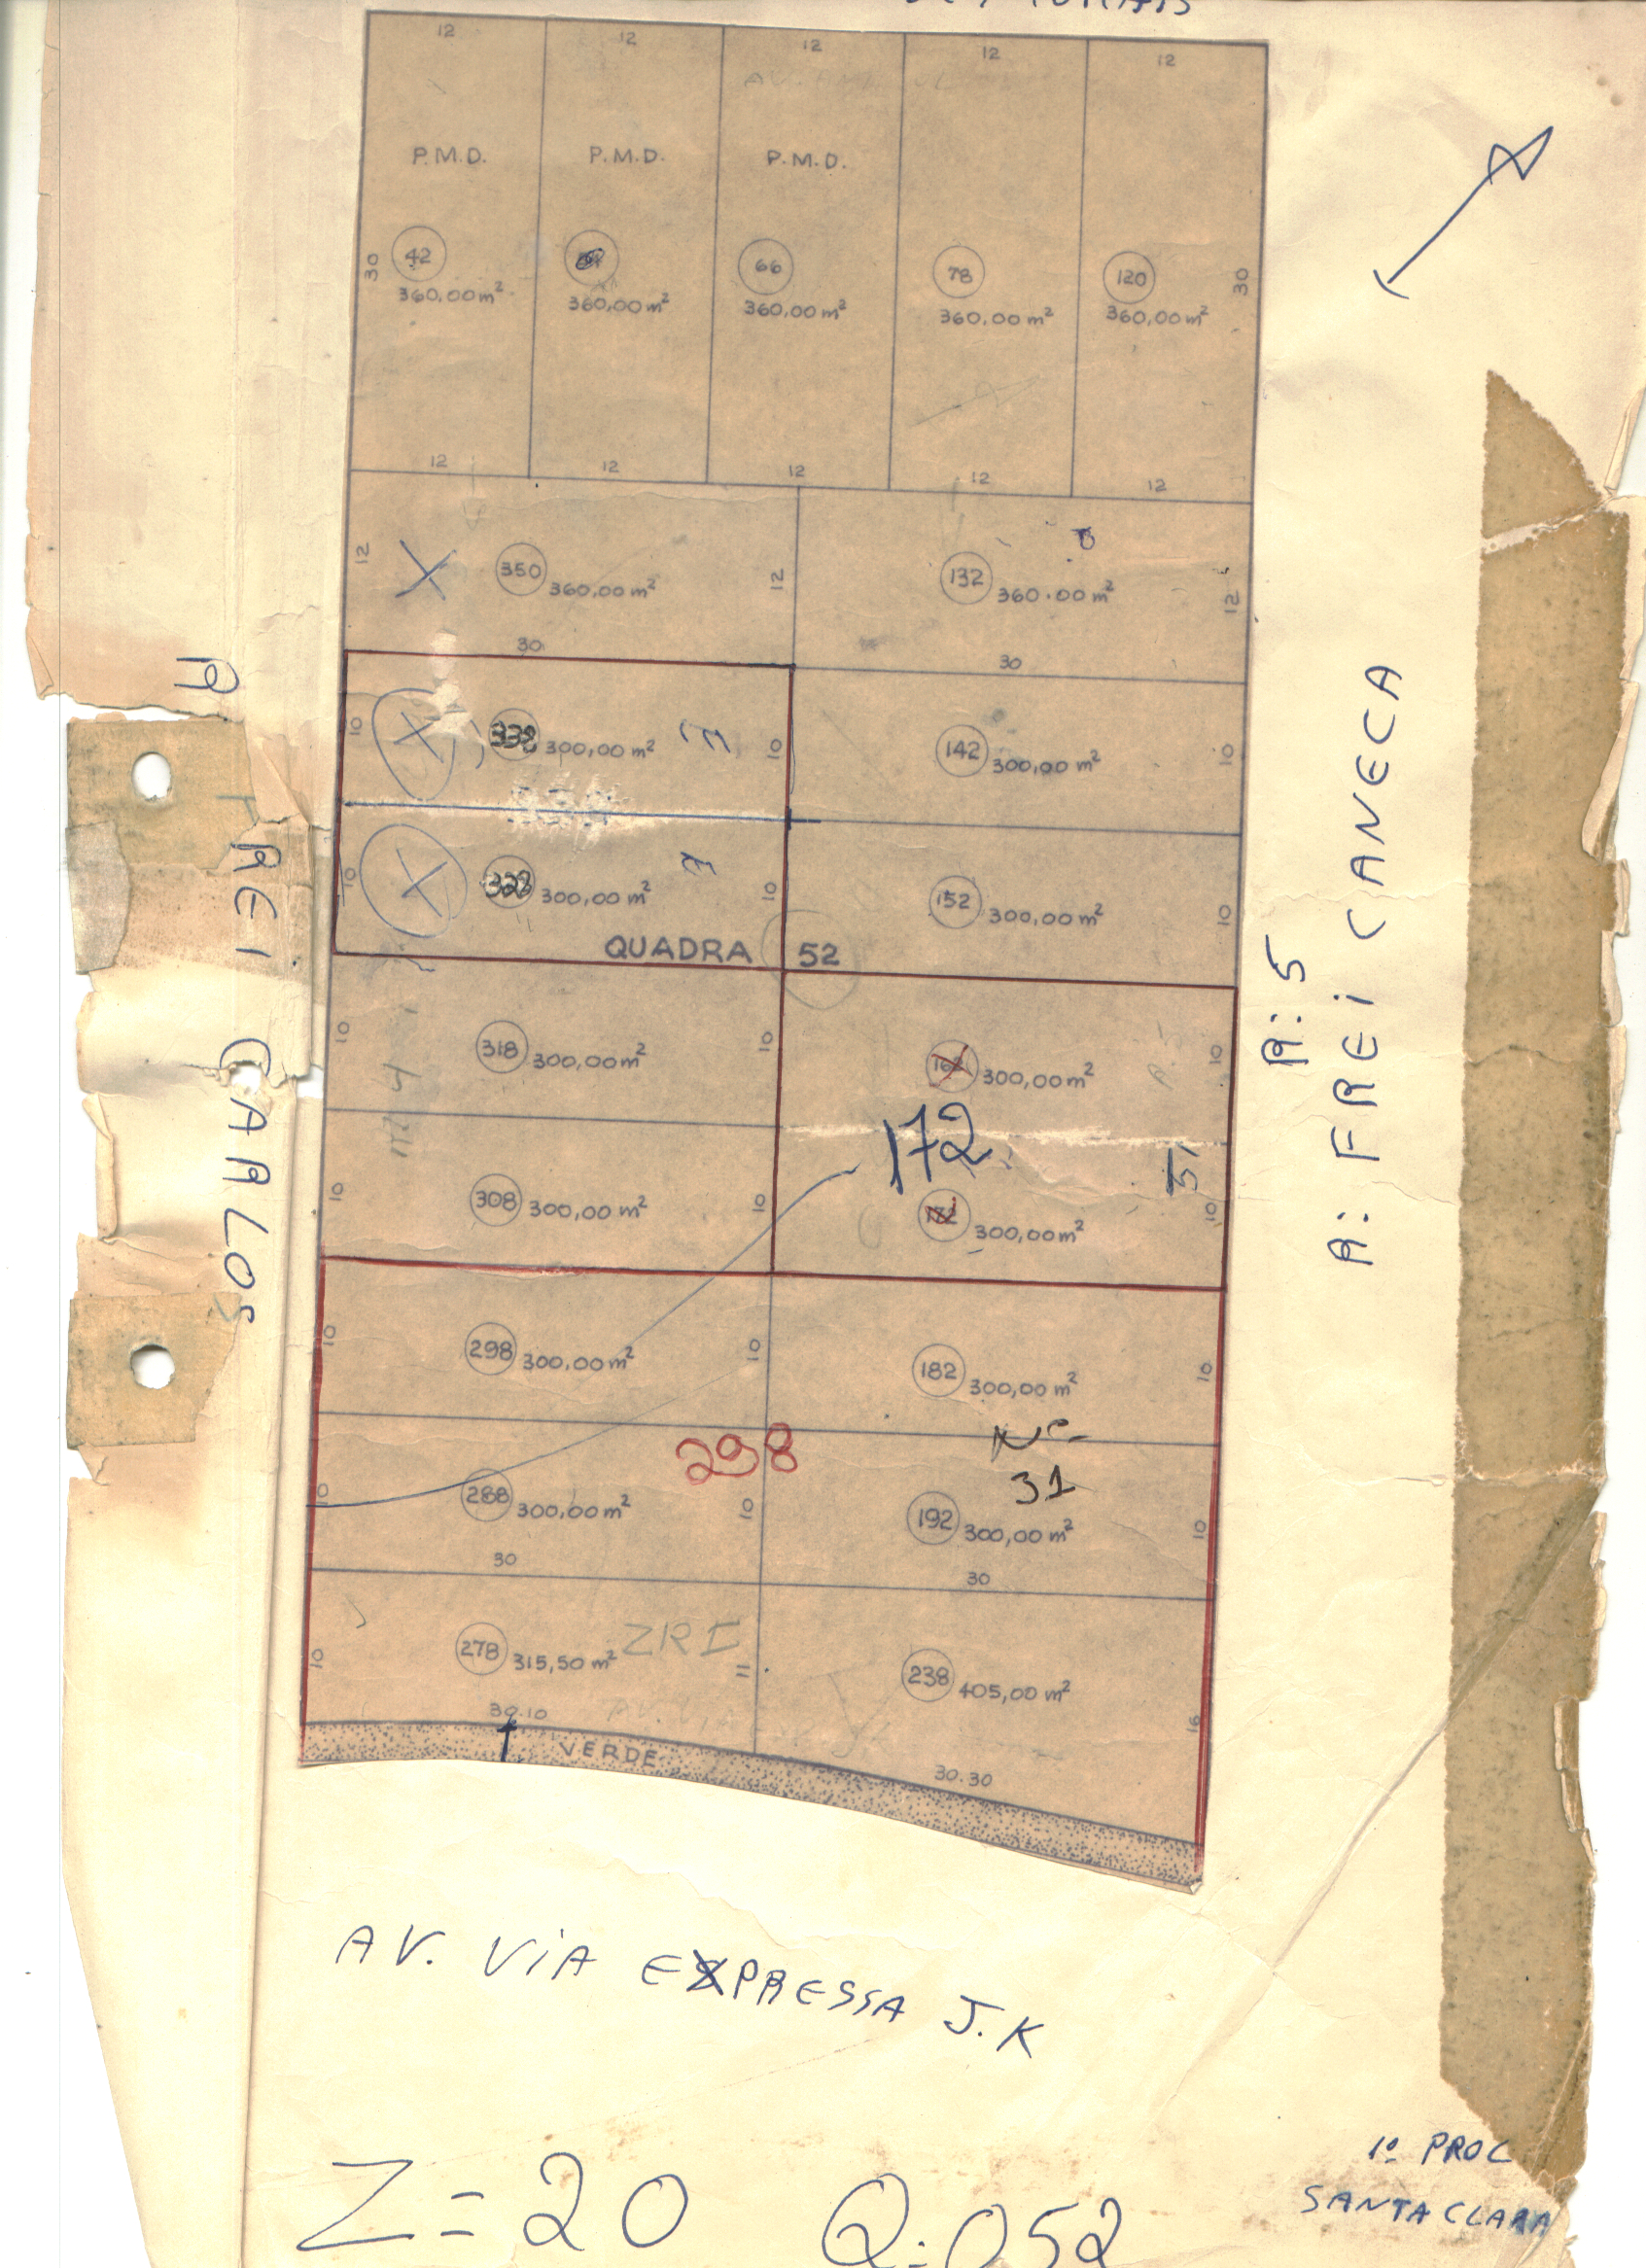 12 12 12 12 12
P.M.D. P.M.D. P.M.D.
30 42 66 78 120 30
360,00m² 360,00m² 360,00m² 360,00m² 360,00m²
12 12 12 12 12
12 350 360,00m² 12 132 360.00m² 12
30 30
10 338 300,00m² 10 142 300,00m² 10
10 328 300,00m² 10 152 300,00m² 10
QUADRA 52
10 318 300,00m² 10 162 300,00m² 10
172
10 308 300,00m² 10 172 300,00m² 10
10 298 300,00m² 10 182 300,00m² 10
298
Nº
31
10 288 300,00m² 10 192 300,00m² 10
30 30
ZRI
10 278 315,50m² 11 238 405,00m² 16
30.10
VERDE
30.30
R FREI CARLOS
R:5
R: FREI CANECA
AV. VIA EXPRESSA J.K
1º PROC
SANTA CLARA
Z=20 Q:052